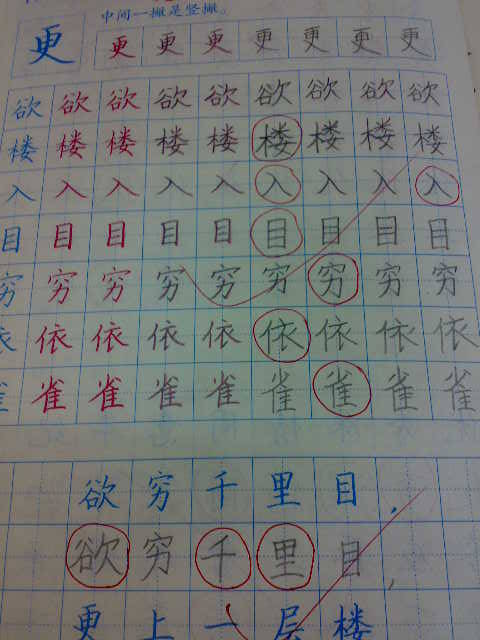 中间一撇是竖撇。
更更更更更更更更
欲欲欲欲欲欲欲欲欲
楼楼楼楼楼楼楼楼楼
入入入入入入入入入
目目目目目目目目目
穷穷穷穷穷穷穷穷穷
依依依依依依依依依
雀雀雀雀雀雀雀雀雀
欲穷千里目，
欲穷千里目，
更上一层楼